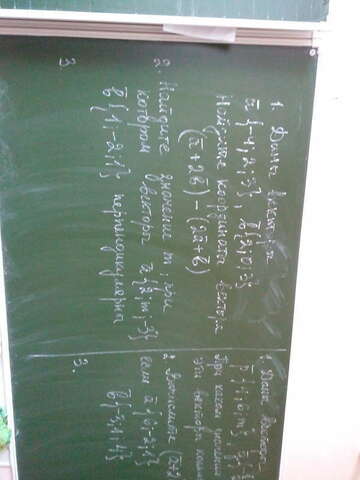 1. Даны векторы
ā{-4;2;3}, b̄{2;0;3}
Найдите координаты вектора
(ā + 2b̄) - (2ā + b̄)
2. Найдите значение m, при
котором векторы ā{2;m;-3}
b̄{1;-2;1} перпендикулярны
3
1. Даны
При каком значении
эти векторы
2. Вычислите
если ā{6;-2;1}
3.